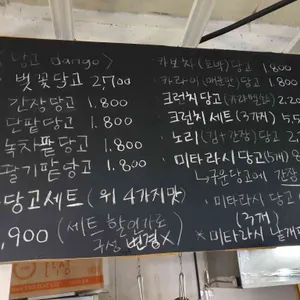 당고 dango >
벚꽃당고 2,700
간장당고 1.800
단팥당고 1.800
녹차팥당고 1.800
딸기팥당고 1.800
당고세트 (위 4가지맛
,900 (세트 할인가로
구성 변경X)
카보챠 (호박) 당고 1.800
카라이 (매운맛) 당고 1.80
크런치당고 2.20
크런치 세트 (3개) 5,5
노리 (김+간장) 당고 2,
미타라시 당고 (5개) 8
↳구운당고에 간장
미타라시 당고
(3개)
* 미타라시 낱개판